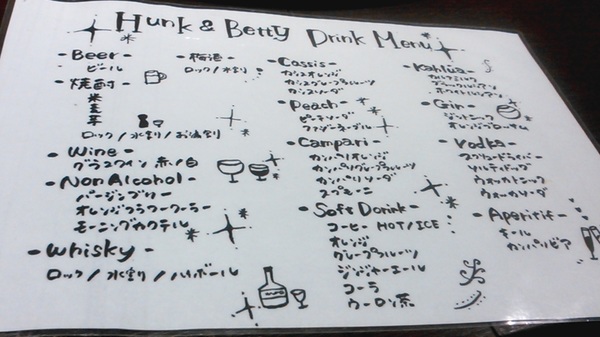 Hunk & Betty Drink Menu
- Beer -
ビール
- 焼酎 -
米
麦
芋
ロック / 水割り / お湯割り
- Wine -
グラスワイン 赤 / 白
- Non Alcohol -
バージンブリー
オレンジフラワークーラー
モーニングカクテル
- Whisky -
ロック / 水割り / ハイボール
- 梅酒 -
ロック / 水割り
- Cassis -
カシスオレンジ
カシスグレープフルーツ
カシスソーダ
- Peach -
ピーチソーダ
ファジーネーブル
- Campari -
カンパリオレンジ
カンパリグレープフルーツ
カンパリソーダ
スプモーニ
- Soft Dorink -
コーヒー HOT / ICE
オレンジ
グレープフルーツ
ジンジャーエール
コーラ
ウーロン茶
- Kahlua -
カルアミルク
ブラックルシアン
ホワイトルシアン
- Gin -
ジントニック
オレンジブロッサム
- Vodka -
スクリュードライバー
ソルティドッグ
ウォッカトニック
ウォッカソーダ
- Aperitif -
キール
カンパリビア